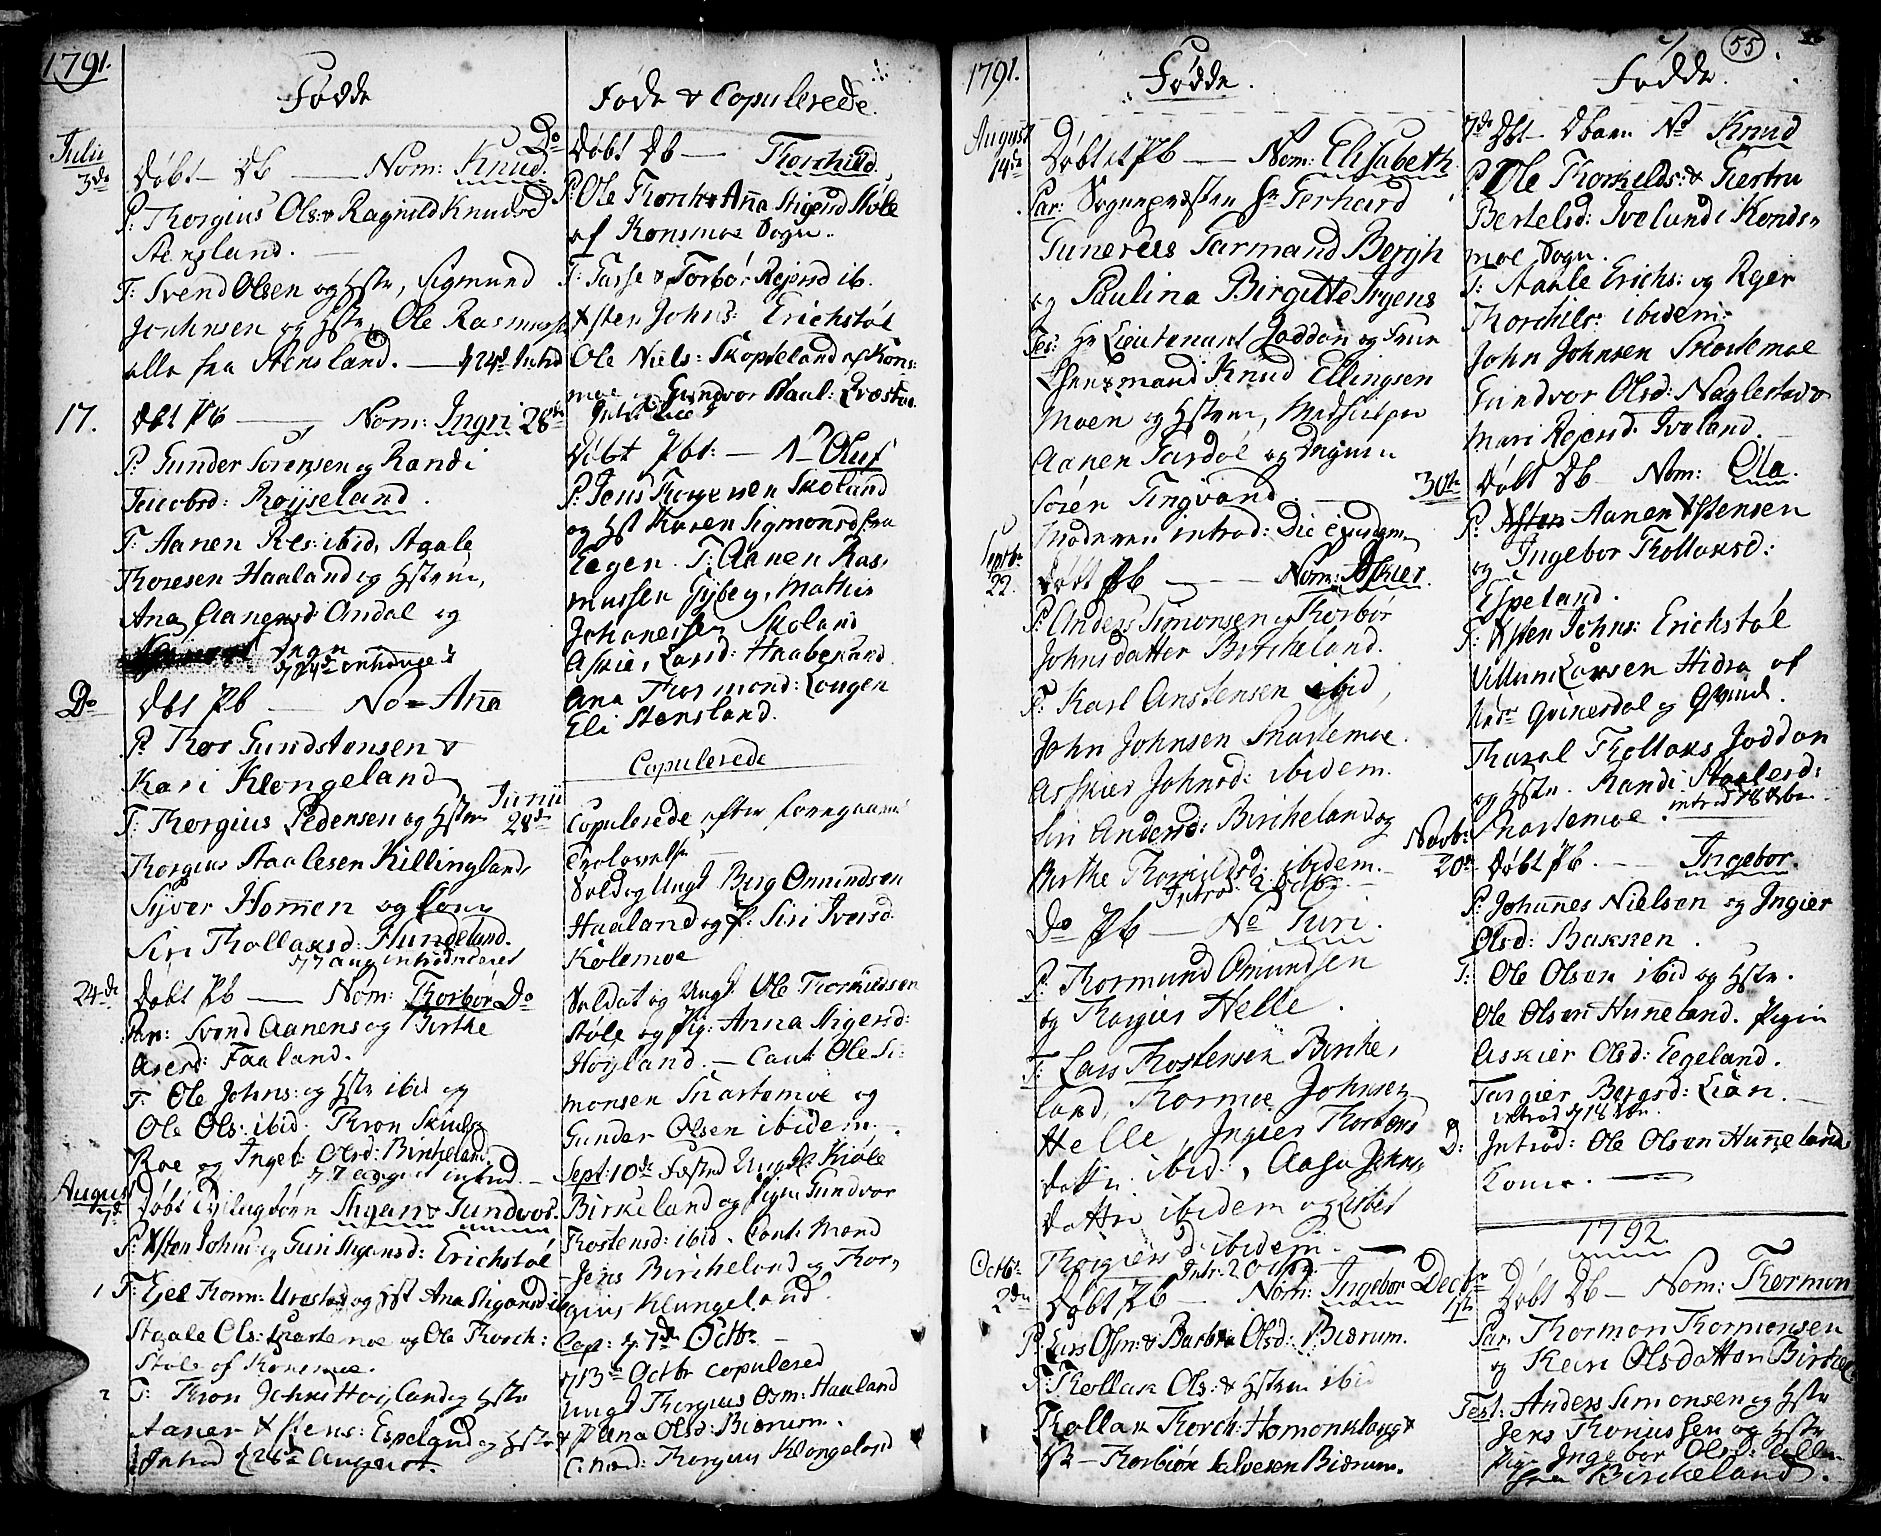 1791.
Födde
Julii
3de
Døbt Db — Nom: Knud.
P: Thorgius Ols: & Ragnild Knudsd
Stensland.
T: Svend Olsen og Hstr, Sigmund
Johnsen og Hstr, Ole Rasmuss
alle fra Stensland. — d 24de Introd
17.
Dbt Pb — Nom: Ingri
P: Gunder Sørensen og Randi
Jacobsd: Røyseland.
T: Aanen Pels: ibid, Staale
Thoresen Haaland og Hstrue,
Ana Aanensd: Omdal og
Do
Dbt Pb — No = Anna
P: Thor Gundstensen &
Kari Klongeland
T: Thorgius Pedersen og Hstr
Thorgius Staalesen Killingland,
Syver Homen og Kone
Siri Thollaksd: Hundeland.
d 7 aug introduceret
24de
Døbt Pb — Nom: Thorbor
Par: Svend Aanens og Birthe
Faaland.
T: Ole Johns: og Hstr ibid og
Ole Ols: ibid. Thron
Roe og Ingeb: Olsd: Birkeland
d 7 august introd.
August
7de
Døbt Tvilingbørn Stigen & Gundvor.
P: Østen Johns og Guri Stigensd: Erichstøl
1 T: Ejel Thom: Urestad og Hst Ana Stigensd ib
Staale Ols: Snartemoe og Ole Thorch:
Støle af Konsmoe.
2 T: Thron Johns Høyland og Hstr
Aanen Østens: Espeland og Hstr
Introd d 26de August.
Føde & Copulerede.
Do
Døbt Db — Thorchild.
P: Ole Thorch: & Anna Stigensd Støle
af Konsmoe Sogn.
T: Tasse & Torbor Rejersd ib.
Østen Johns: Erichstøl
Ole Niels: Skopteland af Kons:
moe og Gundvor Paul: Qvæstve
28de
Døbt Pbt: — No Oluf
P: Jens Thorgersen Skoland
og Hst Karen Sigmonsd fra
Eegen. T: Aanen Ras,
mussen Gyberg, Mathis
Johanessen Skoland
Askier Larsd: Haabesland
Ana Thormond: Lougen
Eli Stensland.
Copulerede
Junii
28de
Copulerede efter foregaaende
Trolovelse
Soldog Ungk Berg Omundsen
Haaland og P: Siri Iversd:
Kølemoe
Do
Soldat og Ungk Ole Thorkildsen
Støle og Pig: Anna Stigensd:
Høyland. — Caut Ole Si:
monsen Snartemoe og
Gunder Olsen ibidem.
Sept: 10de fæsted Ungk Kiøle
Birkeland og Pigen Gundvor
Thostensd: ibid. Caut: Mænd
Jens Birkeland og Thor,
gius Klungeland
Cop: d 7de Octbr —
d 13de Octbr copulered
Ungk Thorgius Osm: Haaland
& P Ana Olsd: Biærum.
C: mænd: Thorgius Klongeland
1791.
Födde.
August
14de
Døbt et Pb — Nom: Elisabeth.
Par: Sognepræsten Hr Gerhard
Gunereus Garmand Bergh
og Paulina Birgitte Irgens
Tes: Hr Lieutenant Joddan og Frue
Lhensmand Knud Ellingsen
Moen og Hstrue, Medhielper
Aanen Tardøl og Degnen
Søren Tingvand. —
Moderen introd: Die ejusdem
Septbr
22.
Døbt Pb — Nom: Askier.
P: Anders Simonsen og Thorbør
Johnsdatter Birkeland.
T: Karl Anstensen ibid,
John Johnsen Snartemoe.
Asskier Johnsd: ibidem.
Siri Andersd: Birkeland og
Birthe Thorkildsd: ibidem.
Introd: 2 Octbr
Do Pb — No Turi.
P: Thormund Omundsen
og Thorgier Helle.
T: Lars Thostensen Birke,
land, Thormoe Johnsen
Helle, Ingier Thorbens
datter ibid:, Aasa Johns,
datter ibidem og Lisbet
Thorgiersd: ibidem.
Intr: 2 Octbr
Octbr
2den
Døbt Pb — Nom: Ingebor
P: Lars Osm: & Barbra Olsd: Biærum.
T: Thollak Ols: & Hstrue ibid
Thollak Thorch: Homonklong &
H — Thorbiør Salvesen Biærum.
55
Födde.
7de Dbt Dbarn No Knud
P: Ole Thorkelds: & Giertru
Bertelsd: Iveland i Konds,
moe Sogn.
T: Staale Erichs: og Rejer
Thorchils: ibidem.
John Johnsen Snartemoe
Gundvor Olsd: Naglestad &
Mari Rejersd: Iveland.
30te
Døbt Db Nom: Ola.
P: Aanen Østensen
og Ingebor Thollaksd:
Espeland.
T: Østen Johns: Erichstøl
Villum Larsen Hidra af
Qvinesdal og Qvind.
Tharal Thollaks Joddan
og Hstr. Randi Staalesd:
Snartemoe.
Novbr
20de
Døbt Pb. — Ingebor.
P: Johannes Nielsen og Ingier
Olsd: Bakken.
T: Ole Olsen ibid og Hstr.
Ole Olsen Huneland. Pigen
Askier Olsd: Eegeland.
Targier Bergsd: Lian.
D: Introd: Ole Olsen Hunelands
Kone. —
1792
Decbr
1ste
Døbt Db — Nom: Thormon
Par. Thormon Thormonsen
og Kari Olsdatter Birkel
Test: Anders Simonsen og Hstr
Jens Thoriussen og Hstr
Pige Ingebor Olsd: alle
fra Birkeland.